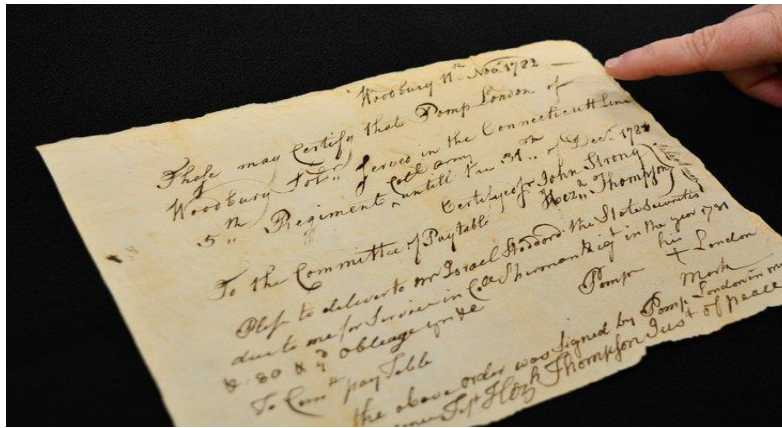 Woodbury 11th Novr 1782
These may Certify that Pomp London of
Woodbury served in the Connecticutt Line
5th Regiment Coll army untill the 31st of Decr 1781
Certifyed pr John Strong
Hezh Thompson
To the Committee of Paytable
Plese to deliver to mr Israel Stoddord the State Securities
due to me for Service in Coll Shermans Rigt in the year 1781
& 80 & Obleage yrs &c
Pomp his + London
Mark
To Comtt pay Table
the above order was signed by Pomp London in
Test Hezh Thompson Just of peace